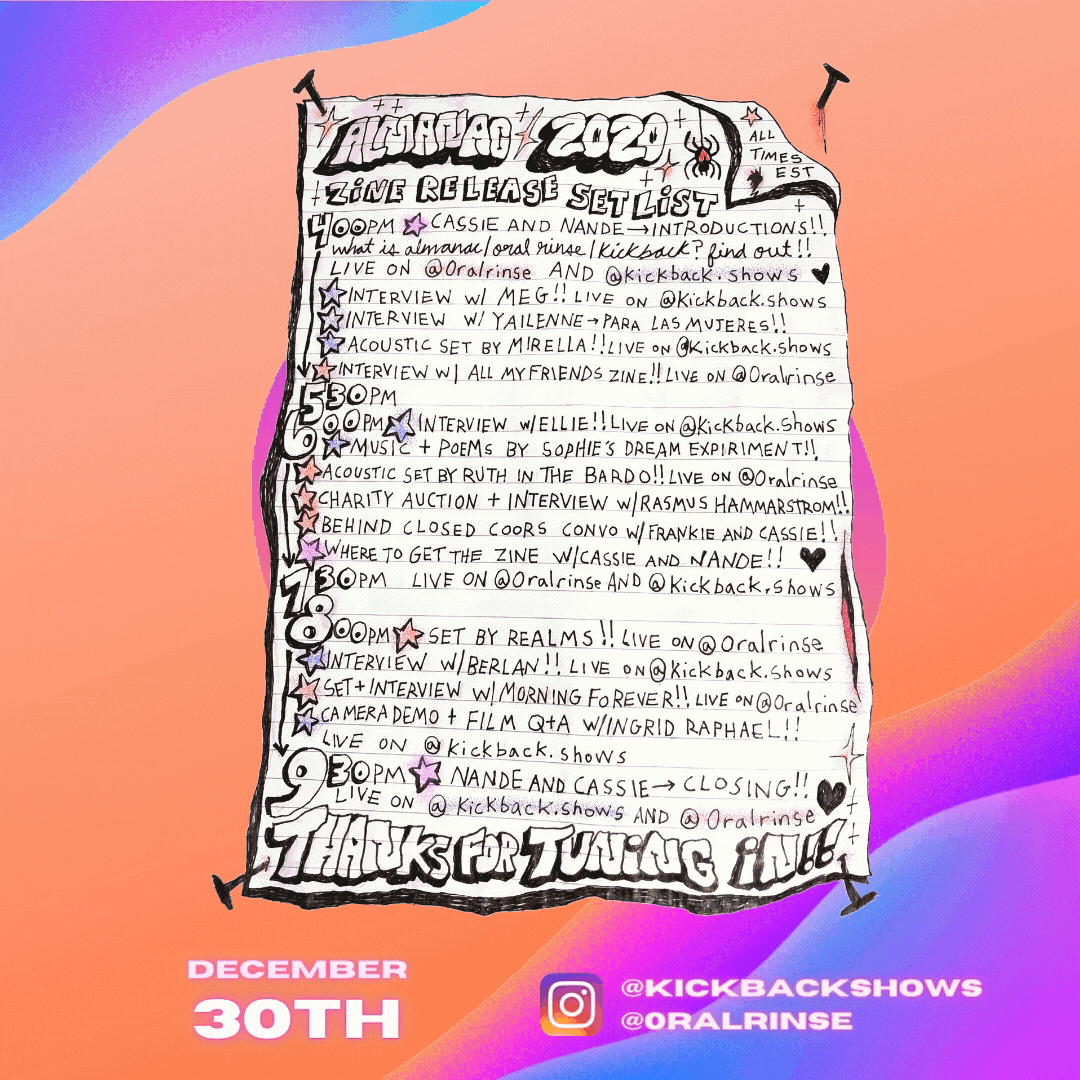 ALMANAC 2020
ALL
TIMES
EST
ZINE RELEASE SET LIST
4 00PM CASSIE AND NANDE→INTRODUCTIONS!!
what is almanac/oral rinse/kickback? find out!!
LIVE ON @Oralrinse AND @kickback.shows
INTERVIEW W/ MEG!! LIVE ON @Kickback.shows
INTERVIEW W/ YAILENNE→PARA LAS MUJERES!!
ACOUSTIC SET BY MIRELLA!! LIVE ON @Kickback.shows
INTERVIEW W/ ALL MY FRIENDS ZINE!! LIVE ON @Oralrinse
530PM
600PM INTERVIEW W/ELLIE!! LIVE ON @Kickback.shows
MUSIC + POEMS BY SOPHIE'S DREAM EXPIRIMENT!!
ACOUSTIC SET BY RUTH IN THE BARDO!! LIVE ON @Oralrinse
CHARITY AUCTION + INTERVIEW W/RASMUS HAMMARSTROM!!
BEHIND CLOSED COORS CONVO W/FRANKIE AND CASSIE!!
WHERE TO GET THE ZINE W/CASSIE AND NANDE!!
730PM LIVE ON @Oralrinse AND @Kickback.shows
800PM SET BY REALMS!! LIVE ON @Oralrinse
INTERVIEW W/BERLAN!! LIVE ON @Kickback.shows
SET+INTERVIEW W/MORNING FOREVER!! LIVE ON @Oralrinse
CAMERA DEMO + FILM Q+A W/INGRID RAPHAEL!!
LIVE ON @Kickback.shows
930PM NANDE AND CASSIE→CLOSING!!
LIVE ON @Kickback.shows AND @Oralrinse
THANKS FOR TUNING IN!!
DECEMBER
30TH
@KICKBACKSHOWS
@ORALRINSE